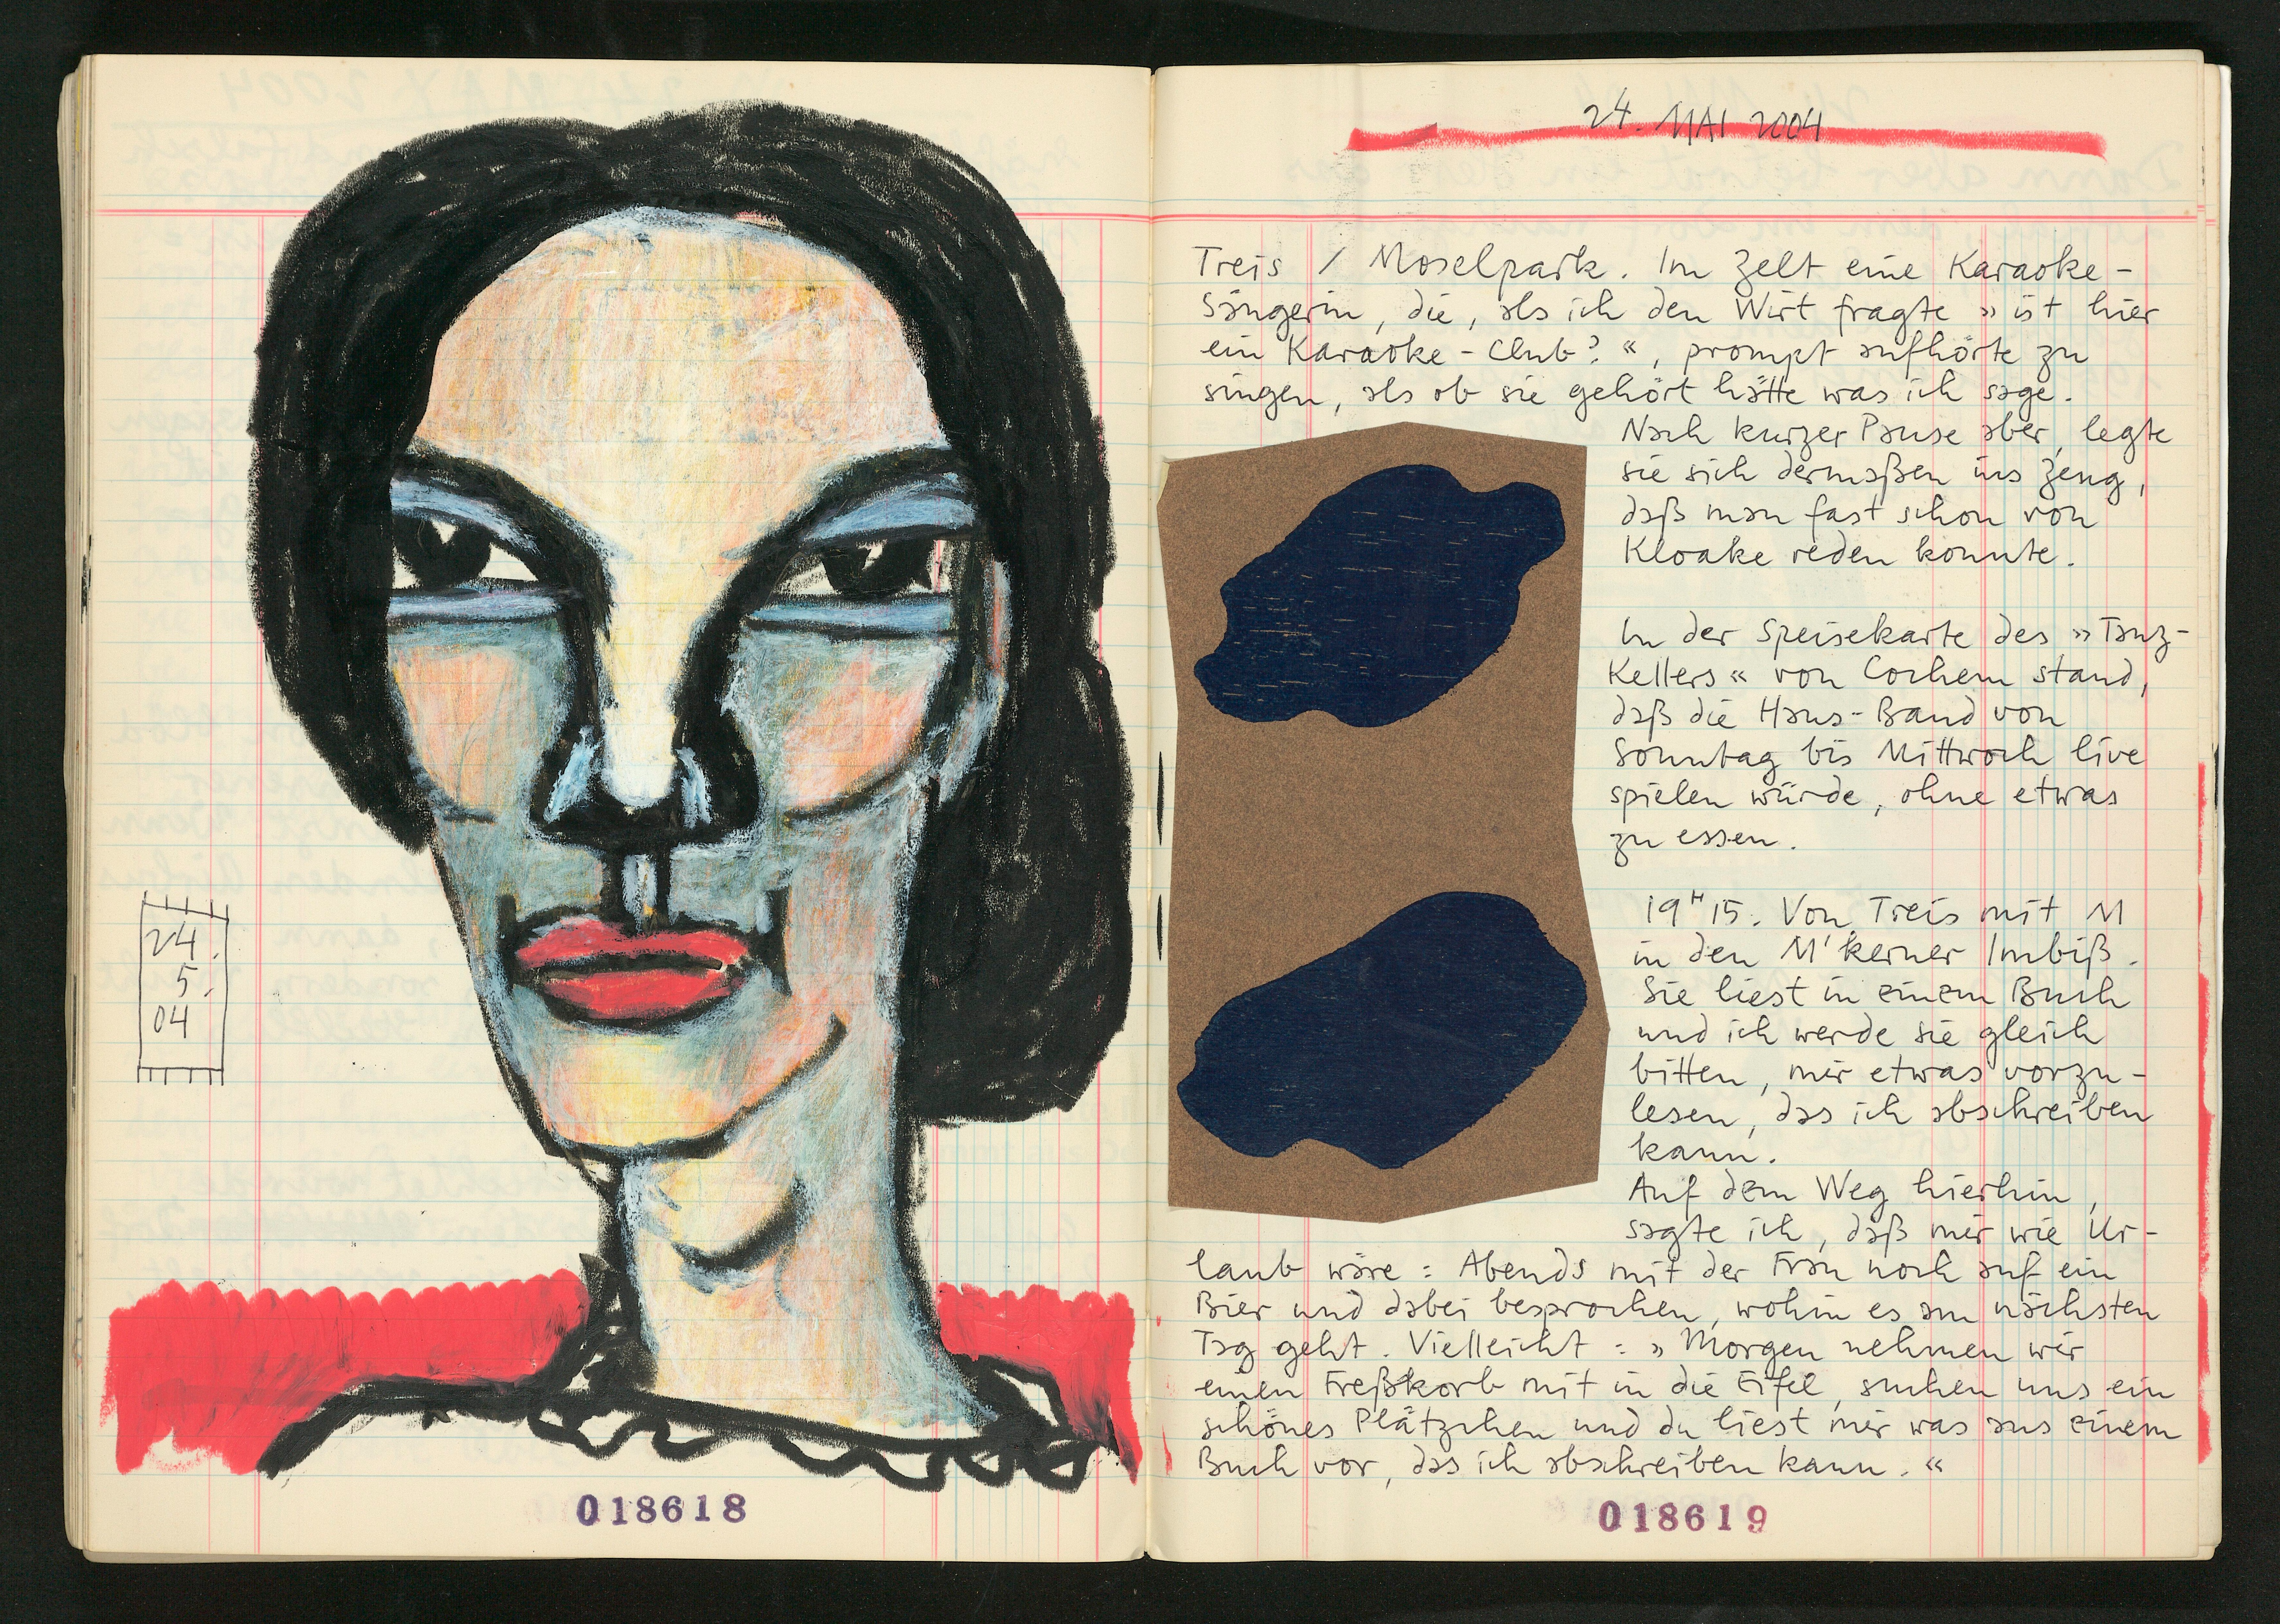 24.
5.
04
018618
24. MAI 2004
Treis / Moselpark. Im Zelt eine Karaoke-
Sängerin, die, als ich den Wirt fragte »ist hier
ein Karaoke-Club?«, prompt aufhörte zu
singen, als ob sie gehört hätte was ich sage.
Nach kurzer Pause aber, legte
sie sich dermaßen ins Zeug,
daß man fast schon von
Kloake reden konnte.
In der Speisekarte des »Tanz-
Kellers« von Cochem stand,
daß die Haus-Band von
Sonntag bis Mittwoch live
spielen würde, ohne etwas
zu essen.
19H15. Von Treis mit M
in den M'kerner Imbiß.
Sie liest in einem Buch
und ich werde sie gleich
bitten, mir etwas vorzu-
lesen, das ich abschreiben
kann.
Auf dem Weg hierhin,
sagte ich, daß mir wie Ur-
laub wäre: Abends mit der Frau noch auf ein
Bier und dabei besprochen, wohin es am nächsten
Tag geht. Vielleicht: »Morgen nehmen wir
einen Freßkorb mit in die Eifel, suchen uns ein
schönes Plätzchen und du liest mir was aus einem
Buch vor, das ich abschreiben kann.«
018619